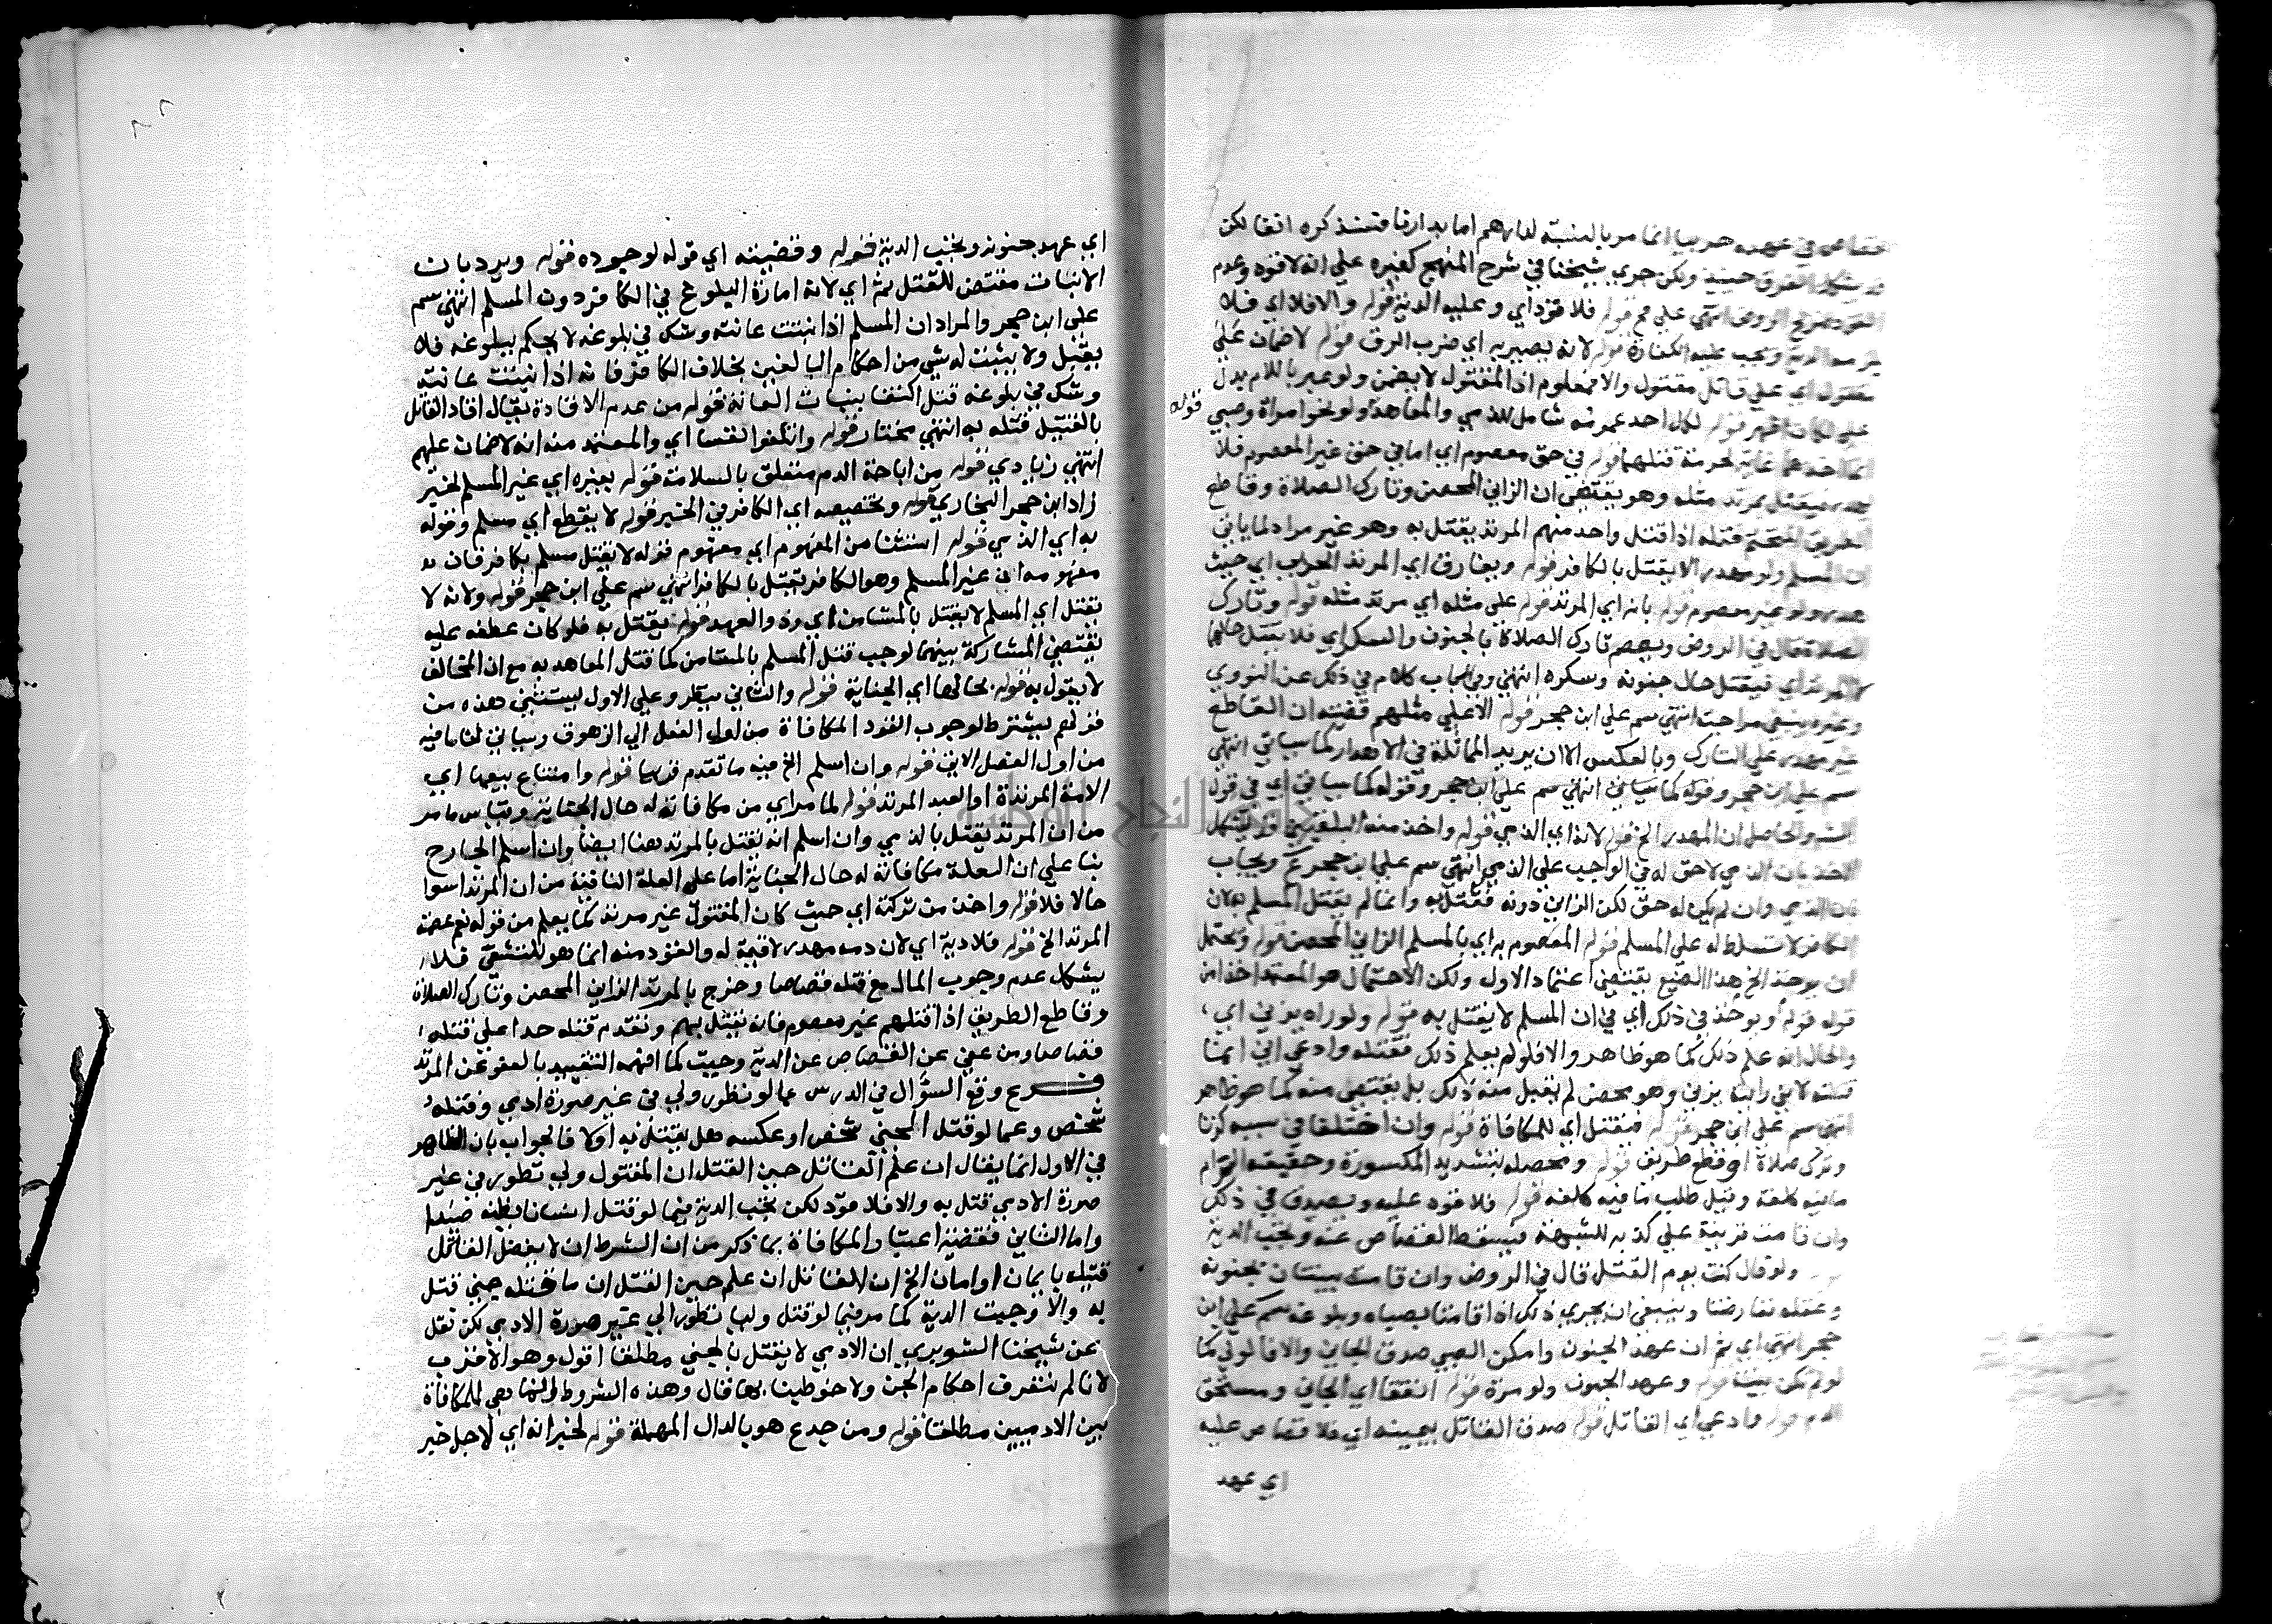 في عهده حربيا انما مر بالنسبة لدارهم اما بدارنا فسنذكره انفا لكن
يشكل الفرق حينئذ ولكن جرى شيخنا في شرح المنهج كغيره على انه لا قود وعدم
القود صريح الروض انتهى على حج قوله فلا قود اي وعليه الدية قوله والا فلا اي فلا
الدية وتجب عليه الكفارة قوله لانه يصير به اي ضرب الرق قوله لا ضمان على
مقتول اي على قاتل مقتول والا فمعلوم ان المقتول لا يضمن ولو عبر باللام بدل
على كان اظهر قوله لكل احد عمومه شامل للذمي والمعاهد ولو نحو امراة وصبي
قوله
غاية لحرمة قتلهما قوله في حق معصوم اي اما في حق غير المعصوم فلا
فيقتل بمرتد مثله وهو يقتضي ان الزاني المحصن وتارك الصلاة وقاطع
الطريق المتحتم قتله اذا قتل واحد منهم المرتد يقتل به وهو غير مراد لما ياتي
ان المسلم ولو مهدرا لا يقتل بالكافر قوله ويفارق اي المرتد الحربي اي حيث
هدر ولو غير معصوم قوله بانه اي المرتد قوله على مثله اي مرتد مثله قوله وتارك
الصلاة قال في الروض ويعصم تارك الصلاة بالجنون والسكر اي فلا يقتل حالهما
كالمرتد اي فيقتل حال جنونه وسكره انتهى وفي الباب كلام في ذلك عن النووي
وغيره ينبغي مراجعته انتهى سم على ابن حجر قوله الا على مثلهم قضيته ان القاطع
غير مهدر على التارك وبالعكس الا ان يريد المماثلة في الاهدار كما سياتي انتهى
سم على ابن حجر وقوله كما سياتي انتهى سم على ابن حجر وقوله كما سياتي اي في قول
الش والحاصل ان المهدر الخ قوله لانه اي الذمي قوله واخذ منه البلقيني قد يشكل
الاخذ بان الذمي لا حق له في الواجب على الذمي انتهى سم على ابن حجر ويجاب
بان الذمي وان لم يكن له حق لكن الزاني دونه فقتل به وانما لم يقتل المسلم به لان
الكافر لا تسلط له على المسلم قوله المعصوم به اي بالمسلم الزاني المحصن قوله ويحتمل
ان يوخذ الخ هذا الصنيع يقتضي اعتماد الاول ولكن الاحتمال هو المعتمد اخذا من
قوله قوله ويوخذ في ذلك اي في ان المسلم لا يقتل به قوله ولو راه يزني اي
والحال انه علم ذلك كما هو ظاهر والا فلو لم يعلم ذلك فقتله وادعى اني انما
قتلته لاني رايته يزني وهو محصن لم يقبل منه ذلك بل يقتص منه كما هو ظاهر
انتهى سم على ابن حجر قوله فيقتل اي للمكافاة قوله وان اختلفا في سببه كزنا
وترك صلاة او قطع طريق قوله ومحصله بتشديد المكسورة وحقيقته الزام
ما فيه كلفة وقيل طلب ما فيه كلفة قوله فلا قود عليه ويصدق في ذلك
وان قامت قرينة على كذبه للشبهة فيسقط القصاص عنه وتجب الدية
ولو قال كنت يوم القتل قال في الروض وان قامت بينتان بجنونه
وعقله تعارضتا وينبغي ان يجري ذلك اذا قامتا بصباه وبلوغه سم على ابن
حجر انتهى اي ثم ان عهد الجنون وامكن الصبي صدق الجاني والا فالولي كما
لو لم تكن بينة قوله وعهد الجنون ولو مرة قوله اتفقا اي الجاني ومستحق
الدم قوله وادعى اي القاتل قوله صدق القاتل بيمينه اي فلا قصاص عليه
اي عهد
اي عهد جنونه وتجب الدية قوله وقضيته اي قوله لوجوده قوله ويرد بان
الانبات مقتض للقتل ثم اي لانه امارة البلوغ في الكافر دون المسلم انتهى سم
على ابن حجر والمراد ان المسلم اذا نبتت عانته وشك في بلوغه لا يحكم ببلوغه فلا
يقتل ولا يثبت له شي من احكام البالغين بخلاف الكافر فانه اذا نبتت عانته
وشك في بلوغه قتل اكتفا بنبات العانة قوله من عدم الاقادة يقال اقاد القاتل
بالقتيل قتله به انتهى مختار قوله وانكفوا لقصا اي والمعتمد منه انه لا ضمان عليهم
انتهى زيادي قوله من اباحة الدم متعلق بالسلامة قوله بغيره اي غير المسلم لخبر
زاد ابن حجر البخاري قوله وتخصيصه اي الكافر في الخبر قوله لا يقطع اي مسلم وقوله
به اي الذمي قوله استثنا من المفهوم اي مفهوم قوله لا يقتل مسلم بكافر فان
مفهومه ان غير المسلم وهو الكافر يقتل بالكافر انتهى سم على ابن حجر قوله ولانه لا
يقتل اي المسلم لا يقتل بالمستامن اي وذو العهد قوله يقتل به فلو كان عطفه عليه
يقتضي المشاركة بينهما لوجب قتل المسلم بالمستامن كما قتل المعاهد به مع ان المخالف
لا يقول به قوله بحالها اي الجناية قوله والثاني ينظر وعلى الاول يستثنى هذه من
قولهم يشترط لوجوب القود المكافاة من اول الفعل الى الزهوق وسياتي لنا ما فيه
من اول الفصل الاتي قوله وان اسلم الخ فيه ما تقدم قريبا قوله وامتناع بيعها اي
الامة المرتدة او العبد المرتد قوله لما مر اي من مكافاته له حال الجناية وقياس ما مر
من ان المرتد يقتل بالذمي وان اسلم انه يقتل بالمرتد هنا ايضا وان اسلم الجارح
بنا على ان العلة مكافاته له حال الجناية اما على العلة الثانية من ان المرتد اسوا
حالا فلا قوله واخذت من تركته اي حيث كان المقتول غير مرتد كما يعلم من قوله نعم عصمة
المرتد الخ قوله فلا دية اي لان دمه مهدر لا قيمة له والقود منه انما هو للتشفي فلا
يشكل عدم وجوب المال مع قتله قصاصا وخرج بالمرتد الزاني المحصن وتارك الصلاة
وقاطع الطريق اذا قتلهم غير معصوم فانه يقتل بهم ونقدم قتله حدا على قتله
قصاصا ومن عفي عن القصاص عن الدية وجبت كما افهمه التقييد بالعفو عن المرتد
فرع وقع السؤال في الدرس عما لو تطور ولي في غير صورة ادمي وقتله
شخص وعما لو قتل الجني شخص او عكسه هل يقتل به اولا فالجواب بان الظاهر
في الاول انما يقال ان علم القاتل حين القتل ان المقتول ولي تطور في غير
صورة الادمي قتل به والا فلا قود لكن تجب الدية فيما لو قتل انسانا يظنه صيدا
واما الثاني فقضية اعتبار المكافاة بما ذكر من ان الشرط ان لا يفضل القاتل
قتيله بايمان او امان الخ ان القاتل ان علم حين القتل ان ما قتله جني قتل
به والا وجبت الدية كما مر فيما لو قتل وليا تطور الى غير صورة الادمي لكن نقل
عن شيخنا الشوبري ان الادمي لا يقتل بالجني مطلقا اقول وهو الاقرب
لانا لم نتعرف احكام الجن ولا خوطبنا بها قال وهذه الشروط انما هي للمكافاة
بين الادميين مطلقا قوله ومن جدع هو بالدال المهملة قوله لخبر انه اي لاجل خبر